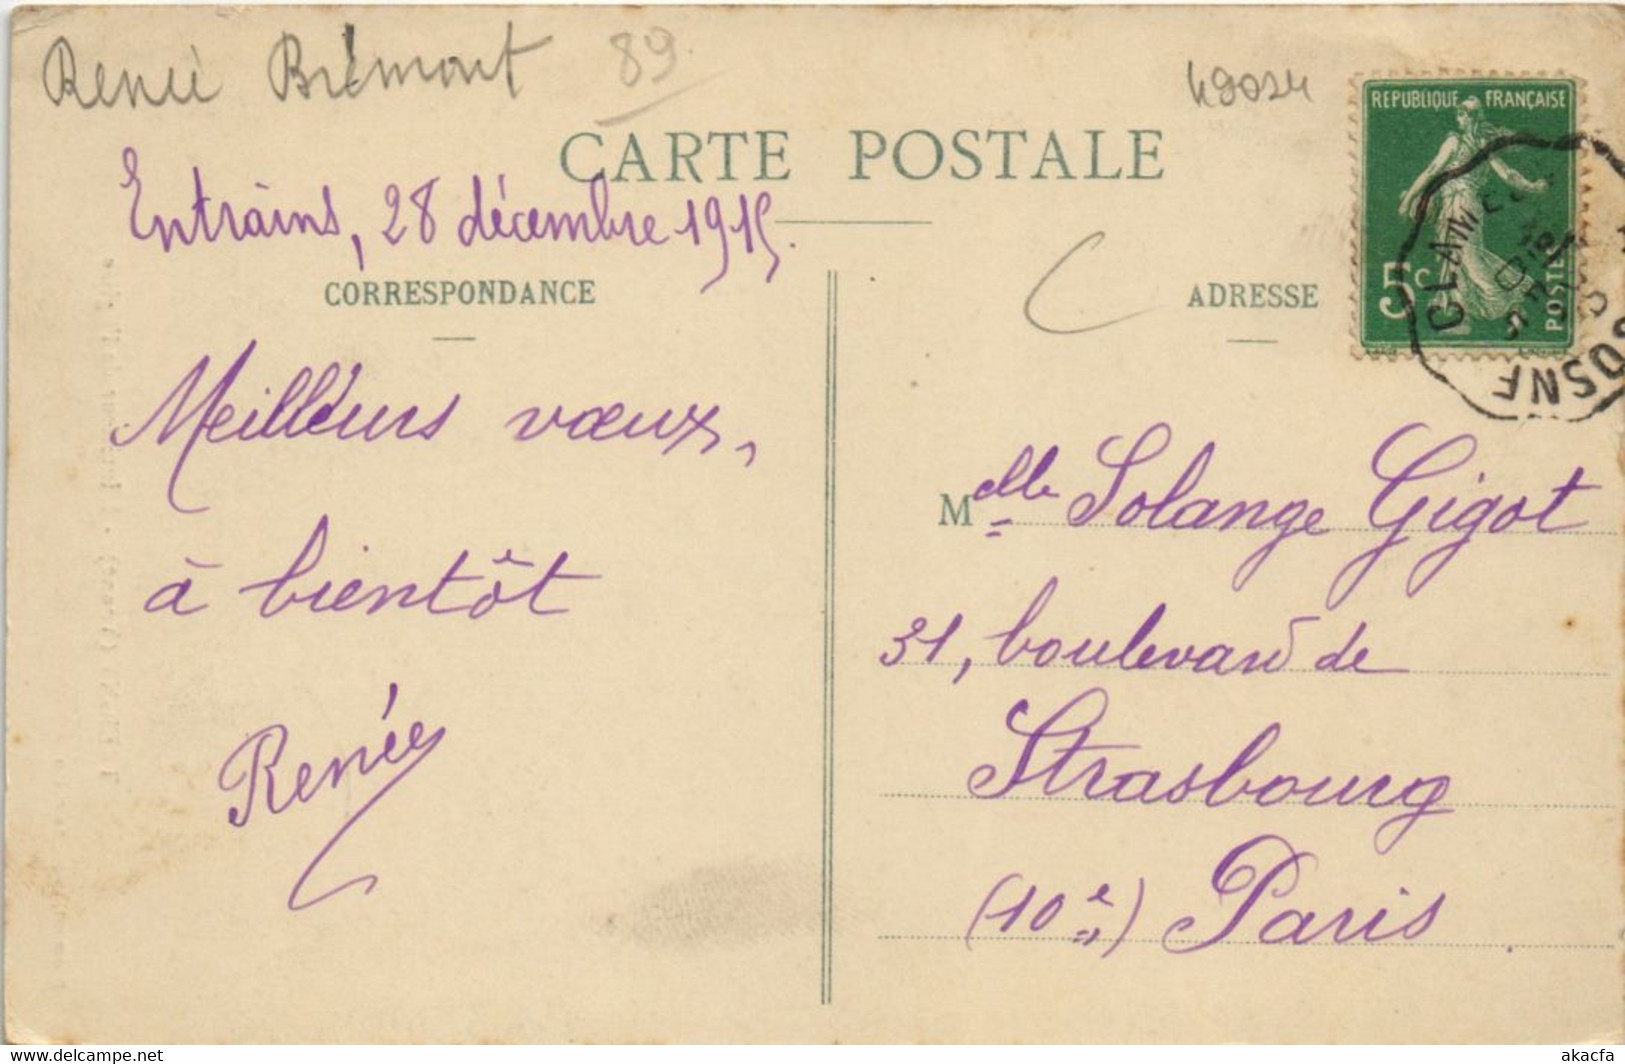 Renée Brémont 89
49024
RÉPUBLIQUE FRANÇAISE
CARTE POSTALE
Entrains, 28 décembre 1915.
CORRESPONDANCE
ADRESSE
5c
POSTES
CLAMECY
COSNE
Meilleurs vœux,
à bientôt
Renée
Melle Solange Gigot
31, boulevard de
Strasbourg
(10e) Paris.
www.delcampe.net
akacfa